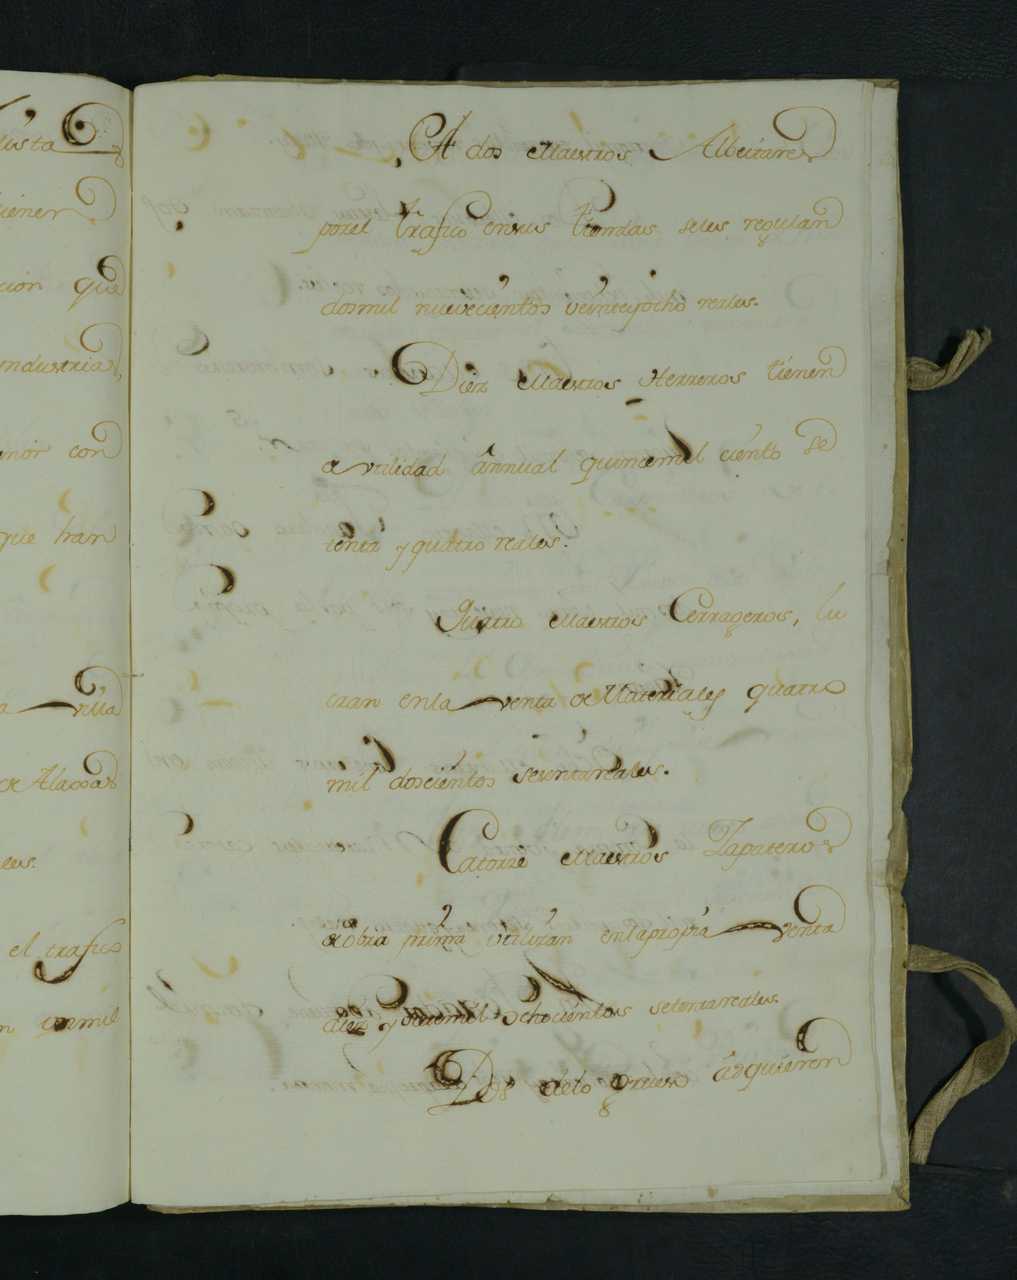 usta
tienen
cion que
industria,
enor con
que han
a villa
de Alaoxas
ales.
el trafico
n unmil
A dos Maestros Albeitares
porel trafico ensus tiendas seles regulan
dosmil nuevecientos veinteyocho reales.
Diez Maestros Herreros tienen
de vtilidad ânnual quincemil ciento se
tenta y quatro reales.
Quatro Maestros Cerrageros, lu
cran enla venta de Materiales quatro
mil doscientos sesentareales.
Catorze Maestros Zapateros
deobra prima vtilizan enlapropia venta
diez y ochocientos setentareales.
Dos delo grueso âdquieren